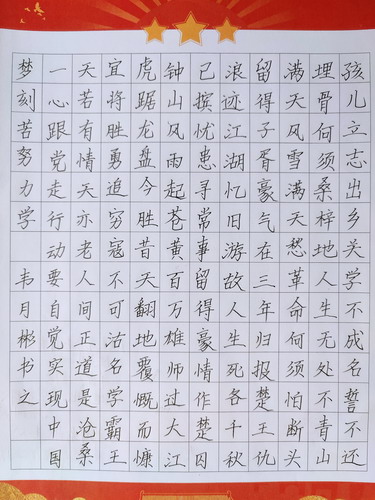 孩儿立志出乡关学不成名誓不还
埋骨何须桑梓地人生无处不青山
满天风雪满天愁革命何须怕断头
留得子胥豪气在三年归报楚王仇
浪迹江湖忆旧游故人生死各千秋
己摈忧患寻常事留得豪情作楚囚
钟山风雨起苍黄百万雄师过大江
虎踞龙盘今胜昔天翻地覆慨而慷
宜将胜勇追穷寇不可沽名学霸王
天若有情天亦老人间正道是沧桑
一心跟党走行动要自觉实现中国
梦刻苦努力学 韦月彬书之